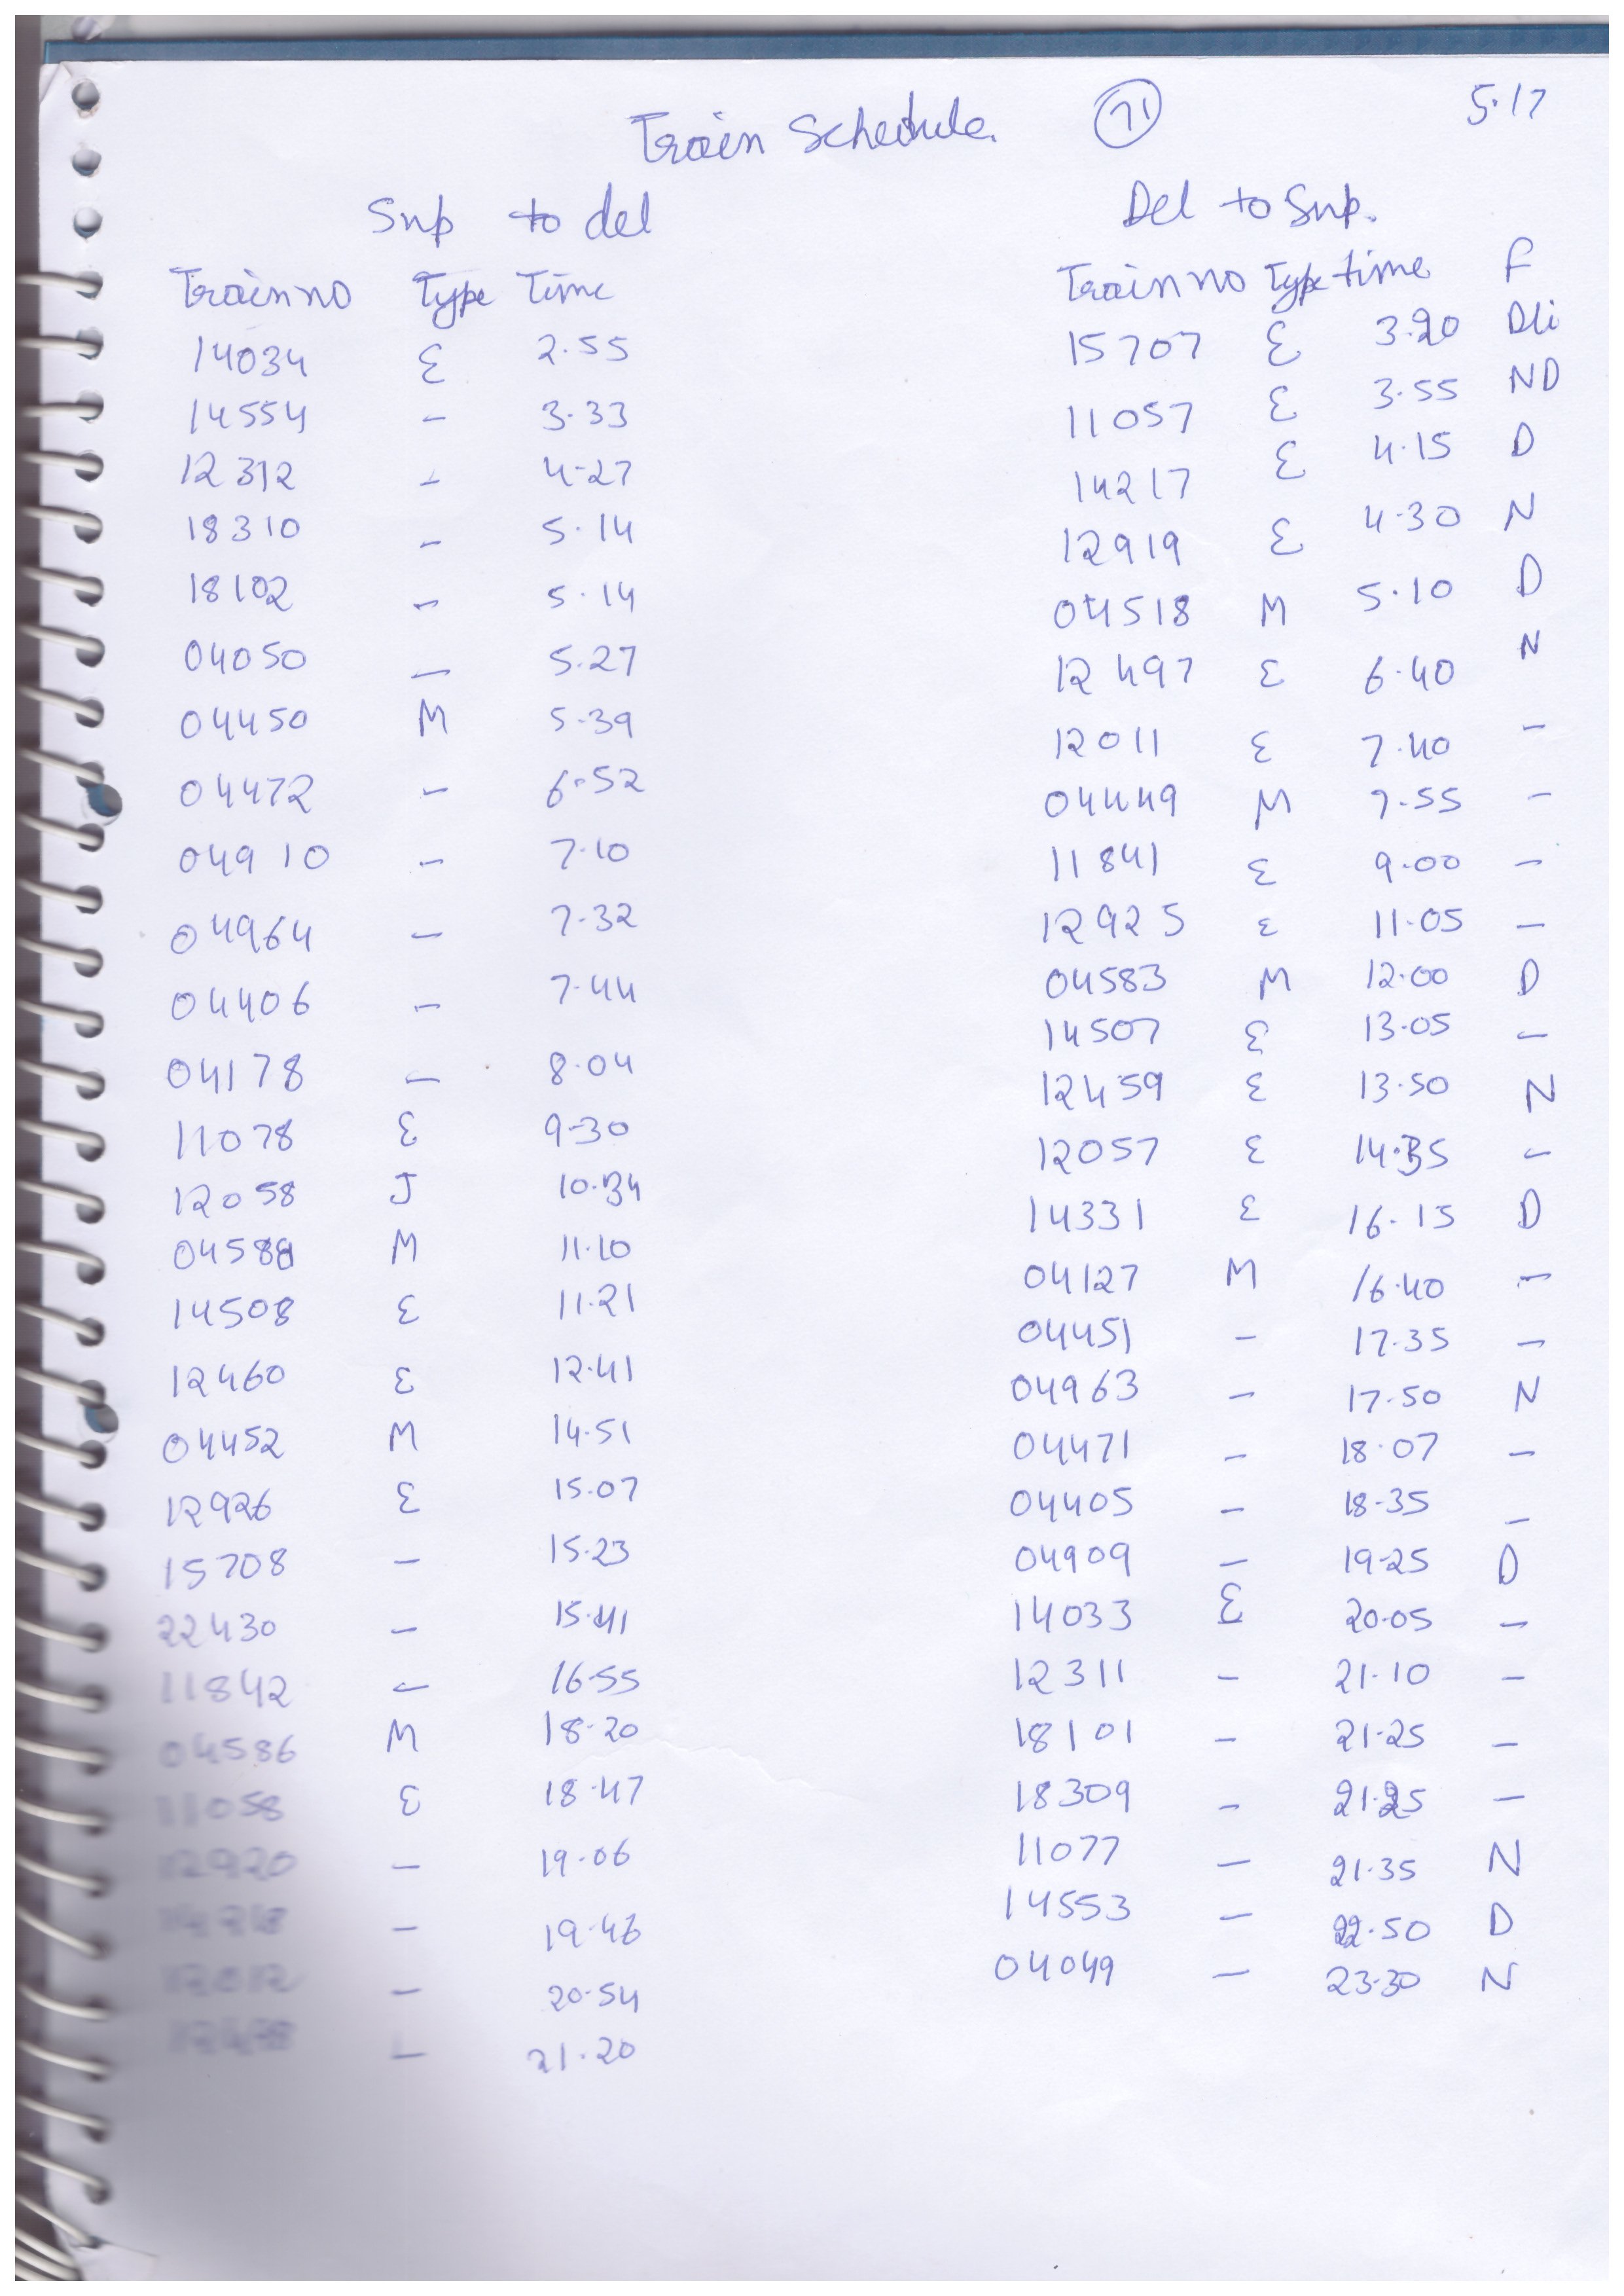 Train Schedule. 71 5.17
Snp to del
Train no Type Time
14034 E 2.55
14554 - 3.33
12312 - 4-27
18310 - 5.14
18102 - 5.14
04050 - 5.27
04450 M 5.39
04472 - 6.52
04910 - 7.10
04964 - 7.32
04406 - 7.44
04178 - 8.04
11078 E 9-30
12058 J 10.34
M 11.10
14508 E 11.21
12460 E 12.41
04452 M 14.51
12926 E 15.07
15708 - 15.23
22430 - 15.41
11842 - 16.55
04586 M 18.20
11058 E 18.47
12920 - 19.06
- 19.46
12012 - 20.54
- 21.20
Del to Snp.
Train no Type time F
15707 E 3.20 Dli
11057 E 3.55 ND
14217 E 4.15 D
12919 E 4.30 N
04518 M 5.10 D
12497 E 6.40 N
12011 E 7.40 -
04449 M 7.55 -
11841 E 9.00 -
12925 E 11.05 -
04583 M 12.00 D
14507 E 13.05 -
12459 E 13.50 N
12057 E 14.35 -
14331 E 16.15 D
04127 M 16.40 -
04451 - 17.35 -
04963 - 17.50 N
04471 - 18.07 -
04405 - 18-35 -
04909 - 19-25 D
14033 E 20.05 -
12311 - 21.10 -
18101 - 21.25 -
18309 - 21.25 -
11077 - 21.35 N
14553 - 22.50 D
04049 - 23.30 N